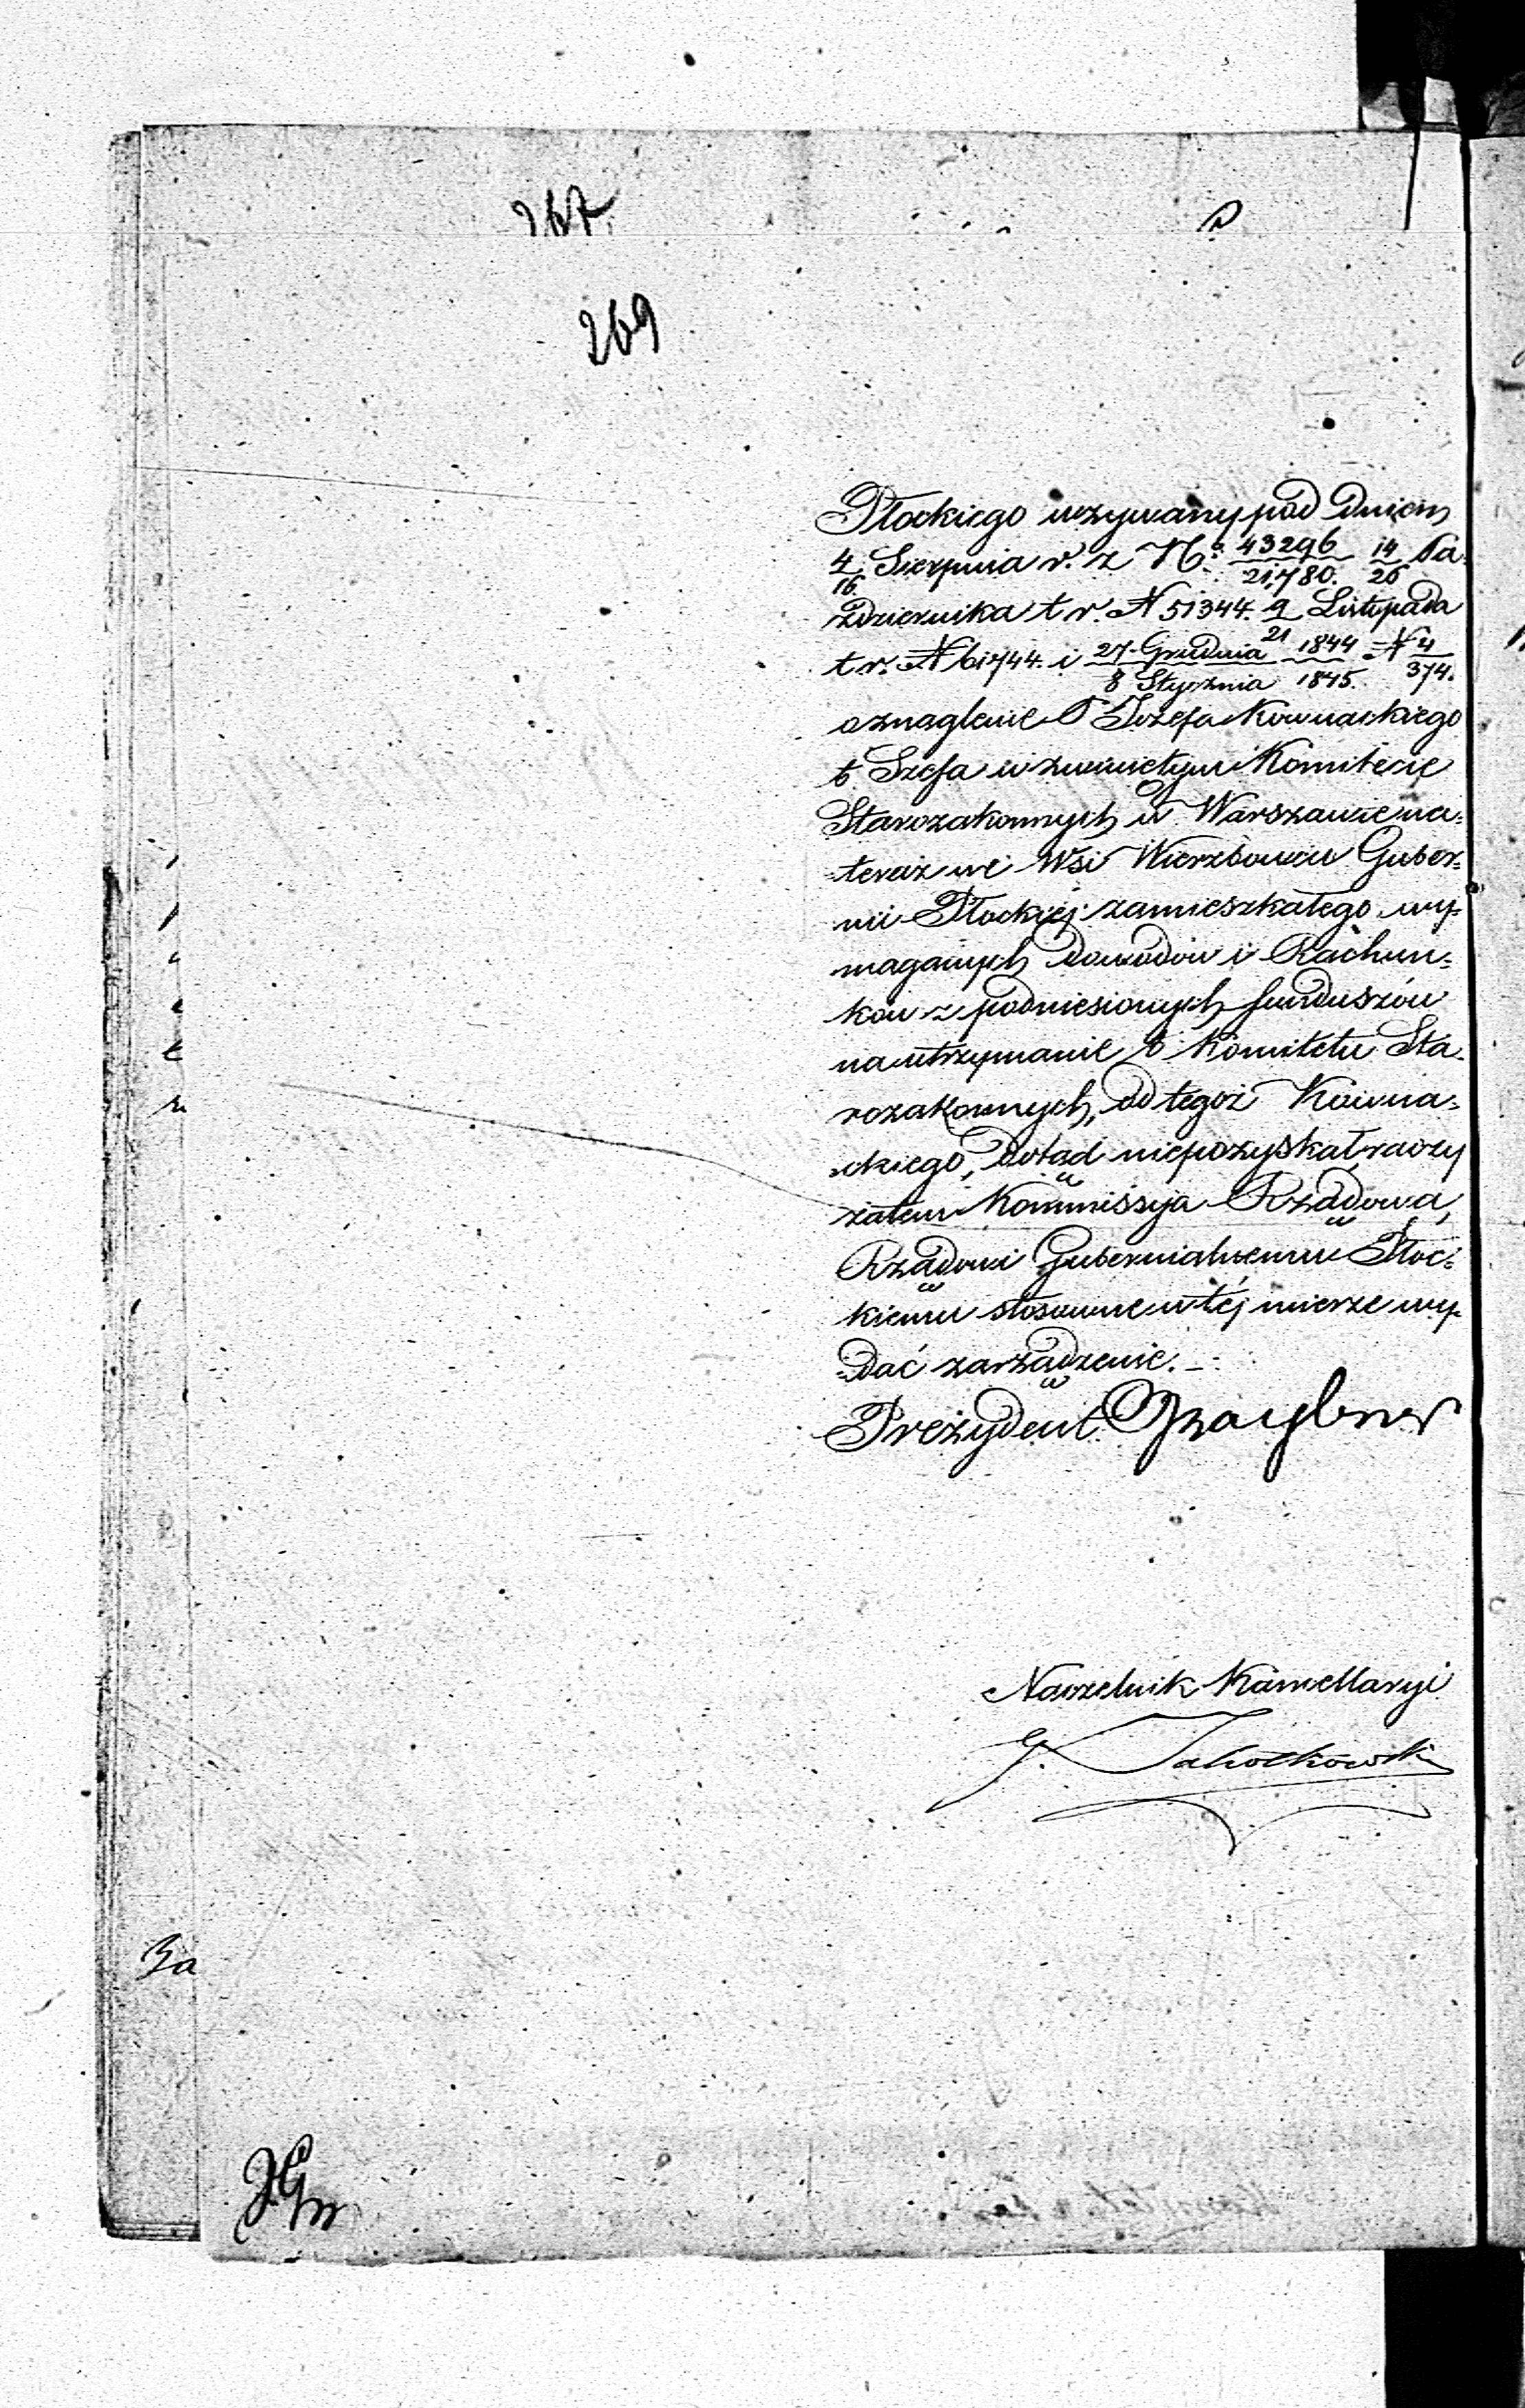 267.
269
Płockiego wzywany pod Dniem
4/16 Sierpnia r. z Nº 43296/21,780. 14/26 Pa-
ździernika t r. N 51344. 9/21 Listopada
t r. N 61744. i 27 Grudnia 1844/8 Stycznia 1845. N 4/374.
o znaglenie P Jozefa Kownackiego
b Szefa w zwiniętym Komitecie
Starozakonnych w Warszawie na-
teraz we Wsi Wierzbowcu Guber-
nii Płockiej zamieszkałego, wy-
maganych Dowodów i Rachun-
ków z podniesionych funduszów
na utrzymanie b Komitetu Sta-
rozakonnych, od tegoż Kowna-
ckiego, dotąd niepozyskał, raczy
zatem Kommissya Rządowa,
Rządowi Gubernialnemu Płoc-
kiemu stosowne w tej mierze wy-
dać zarządzenie.
Prezydent Graybner
Naczelnik Kancellaryi